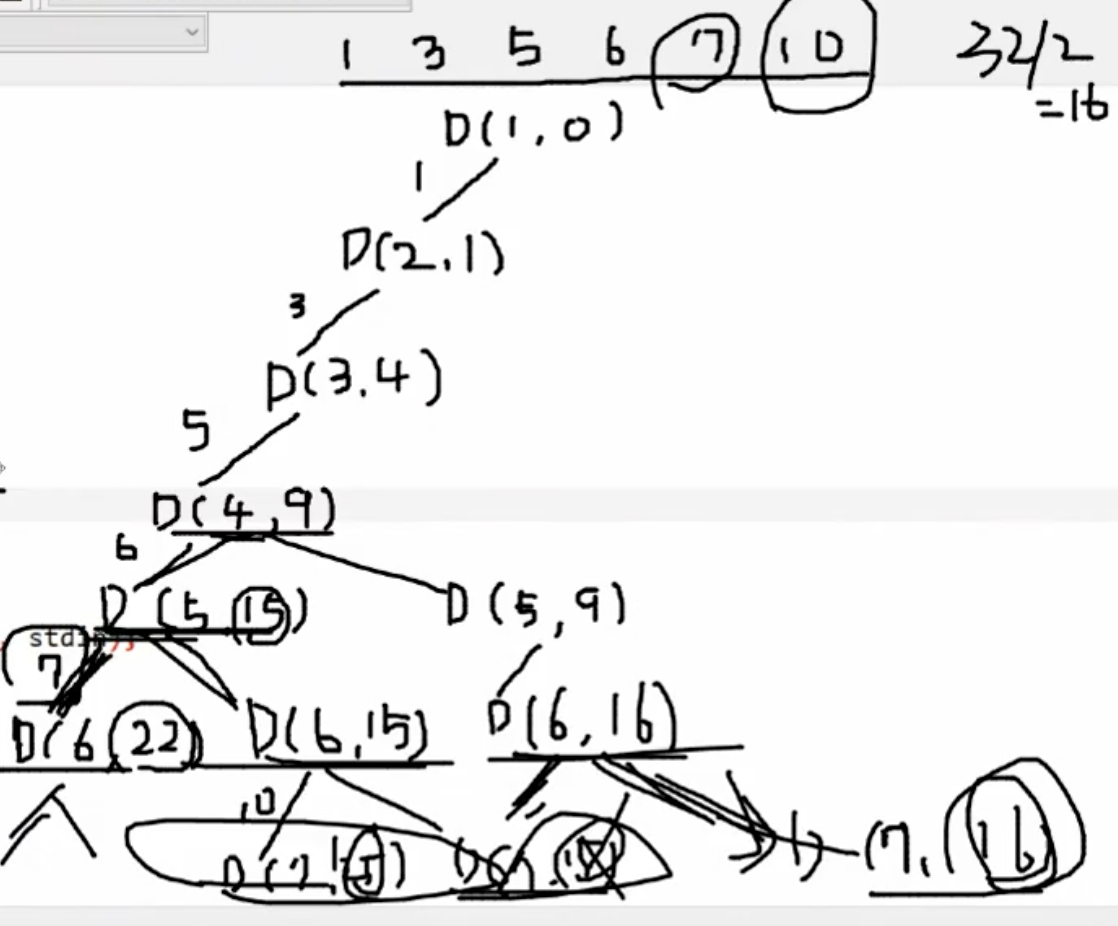 1 3 5 6 7 10 32/2
=16
D(1,0)
1
D(2,1)
3
D(3,4)
5
D(4,9)
6
D(5,15) D(5,9)
stdin);
7
D(6,22) D(6,15) D(6,16)
10
D(7,
(7,16)